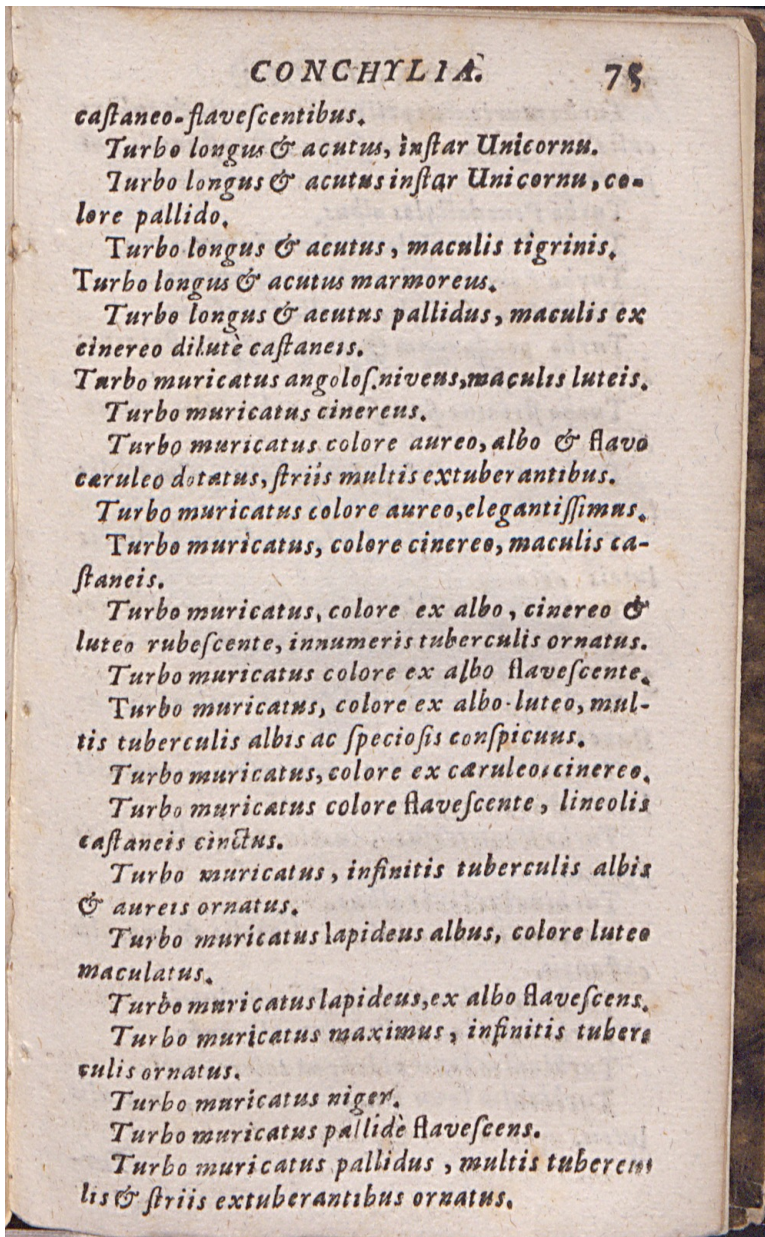 CONCHYLIA. 75
castaneo-flavescentibus.
Turbo longus & acutus, instar Unicornu.
Turbo longus & acutus instar Unicornu, co-
lore pallido.
Turbo longus & acutus, maculis tigrinis.
Turbo longus & acutus marmoreus.
Turbo longus & acutus pallidus, maculis ex
cinereo dilutè castaneis.
Turbo muricatus angolos. niveus, maculis luteis.
Turbo muricatus cinereus.
Turbo muricatus colore aureo, albo & flavo
cæruleo dotatus, striis multis extuberantibus.
Turbo muricatus colore aureo, elegantissimus.
Turbo muricatus, colore cinereo, maculis ca-
staneis.
Turbo muricatus, colore ex albo, cinereo &
luteo rubescente, innumeris tuberculis ornatus.
Turbo muricatus colore ex albo flavescente.
Turbo muricatus, colore ex albo-luteo, mul-
tis tuberculis albis ac speciosis conspicuus.
Turbo muricatus, colore ex cæruleo: cinereo.
Turbo muricatus colore flavescente, lineolis
castaneis cinctus.
Turbo muricatus, infinitis tuberculis albis
& aureis ornatus.
Turbo muricatus lapideus albus, colore luteo
maculatus.
Turbo muricatus lapideus, ex albo flavescens.
Turbo muricatus maximus, infinitis tuber-
culis ornatus.
Turbo muricatus niger.
Turbo muricatus pallidè flavescens.
Turbo muricatus pallidus, multis tubercu-
lis & striis extuberantibus ornatus.